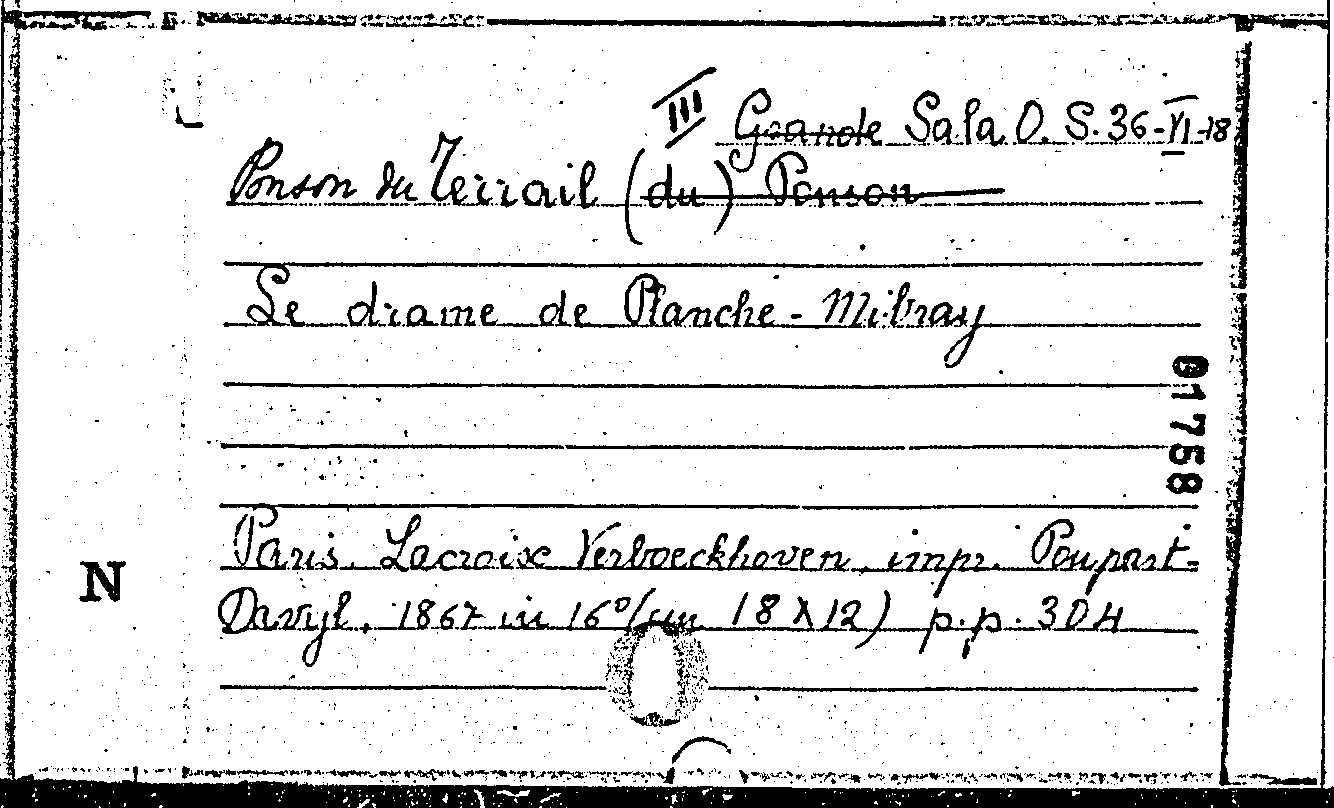 III Grande Sala O. S. 36-VI-18
Ponson du Terrail (du) Ponson
Le drame de Planche-Mibray
01758
Paris. Lacroix Verboeckhoven, impr. Poupart-
N
Davyl, 1867 in 16° (cm 18 X 12) p.p. 304